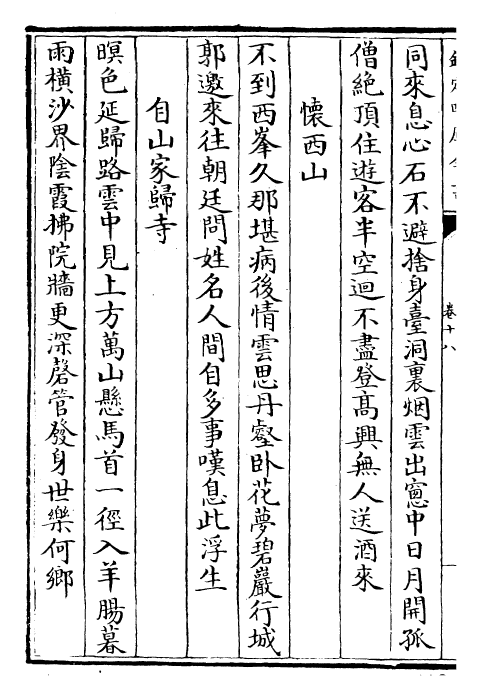 卷十八
同來息心石不避捨身臺洞裏烟雲出窓中日月開孤
僧絶頂住遊客半空迴不盡登髙興無人送酒來
懷西山
不到西峯久那堪病後情雲思丹壑卧花夢碧巖行城
郭邀來往朝廷問姓名人間自多事嘆息此浮生
自山家歸寺
暝色延歸路雲中見上方萬山懸馬首一徑入羊腸暮
雨橫沙界陰霞拂院牆更深磬管發身世樂何鄉